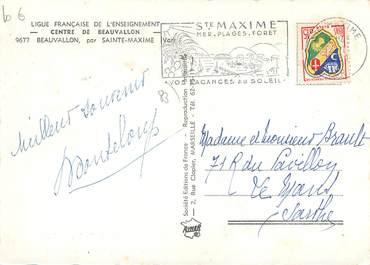 LIGUE FRANÇAISE DE L'ENSEIGNEMENT
CENTRE DE BEAUVALLON
9677 BEAUVALLON, par SAINTE-MAXIME (Var)
STE MAXIME
MER. PLAGES. FORET
VOS VACANCES AU SOLEIL
Meilleur Souvenir
Société Editions de France - Reproduction
2, Rue Clapier, MARSEILLE - Tél. 62
Madame et Monsieur Brault
71 Rue du Pavillon
Le Mans
Sarthe